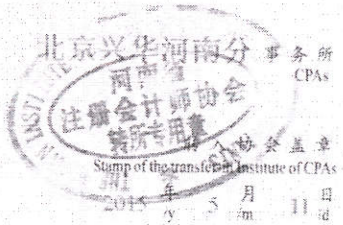 北京兴华河南分 事务所
CPAs
河南省
注册会计师协会
转所专用章
转入协会盖章
Stamp of the transfer-in Institute of CPAs
2015 年 5 月 11 日
/y /m /d